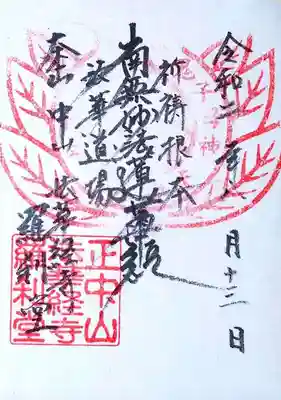 令和二年
月十二日
祈祷根本
南無妙法蓮華経
法華道場
大本山中山法華経寺
羅刹堂
鬼子母神
正中山
法華経寺
羅刹堂